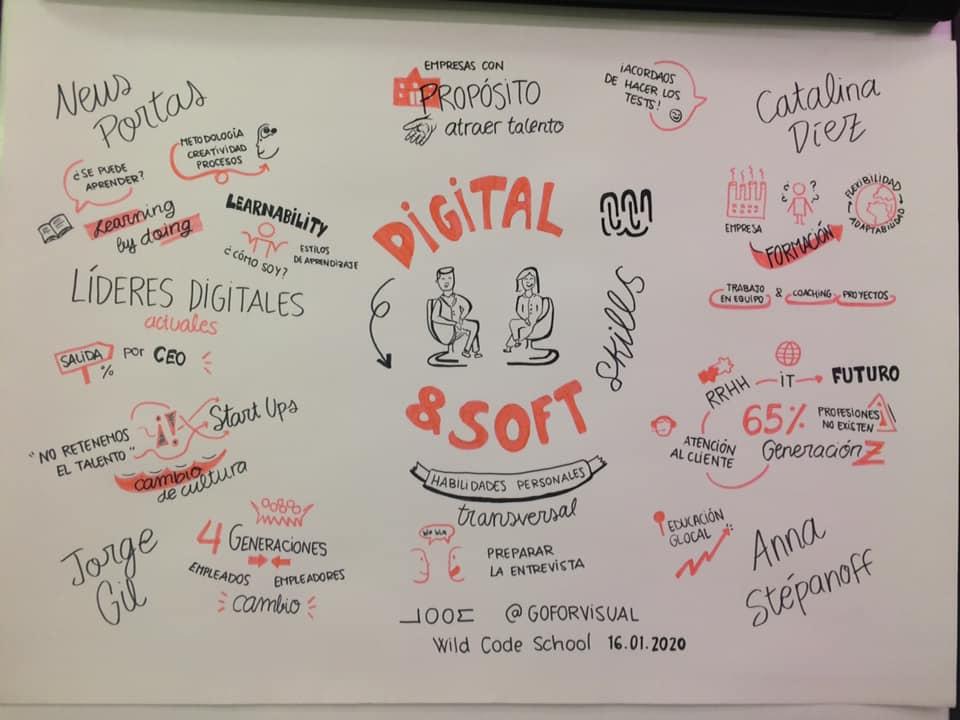 Neus
Portas
¿SE PUEDE
APRENDER?
METODOLOGÍA
CREATIVIDAD
PROCESOS
Learning
by doing
LEARNABILITY
¿CÓMO SOY?
ESTILOS
DE APRENDIZAJE
LÍDERES DIGITALES
actuales
SALIDA
%
por CEO
"NO RETENEMOS
EL TALENTO"
¡!
Start Ups
cambio
de cultura
Jorge
Gil
4 GENERACIONES
EMPLEADOS
EMPLEADORES
cambio
EMPRESAS CON
PROPÓSITO
atraer talento
¡ACORDAOS
DE HACER LOS
TESTS!
DIGITAL
& SOFT
Skills
HABILIDADES PERSONALES
transversal
bla bla
PREPARAR
LA ENTREVISTA
@GOFORVISUAL
Wild Code School 16.01.2020
Catalina
Díez
EMPRESA
¿ ?
¿
FORMACIÓN
FLEXIBILIDAD
ADAPTABILIDAD
TRABAJO
EN EQUIPO
&
COACHING
PROYECTOS
RRHH
IT
FUTURO
65%
PROFESIONES
NO EXISTEN
!
Generación Z
ATENCIÓN
AL CLIENTE
EDUCACIÓN
GLOCAL
Anna
Stépanoff